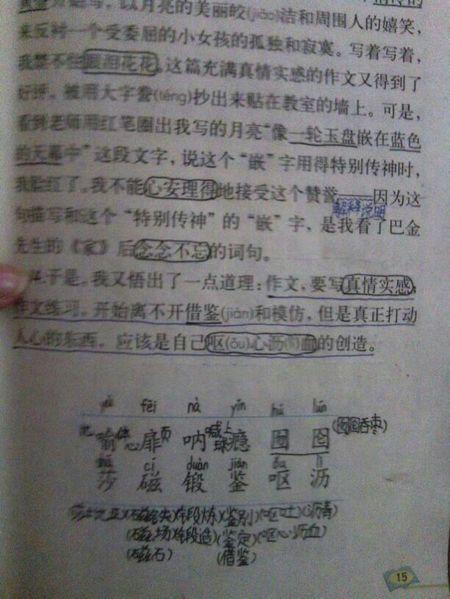 景分别写,以月亮的美丽皎(jiǎo)洁和周围人的嬉笑,
来反衬一个受委屈的小女孩的孤独和寂寞。写着写着,
我禁不住眼泪花花。这篇充满真情实感的作文又得到了
好评,被用大字誊(téng)抄出来贴在教室的墙上。可是,
看到老师用红笔圈出我写的月亮“像一轮玉盘嵌在蓝色
的天幕中”这段文字,说这个“嵌”字用得特别传神时,
我脸红了。我不能心安理得地接受这个赞誉——因为这
解释说明
句描写和这个“特别传神”的“嵌”字,是我看了巴金
先生的《家》后念念不忘的词句。
于是,我又悟出了一点道理:作文,要写真情实感;
作文练习,开始离不开借鉴(jiàn)和模仿,但是真正打动
人心的东西,应该是自己呕(ǒu)心沥(lì)血的创造。
yù fēi nà yǐn hú lún
喻 扉页 呐喊 瘾 囫 囵 (囫囵吞枣)
cí duàn jiàn ǒu lì
莎 磁 锻 鉴 呕 沥
(锻炼)(鉴别)(呕吐)(沥青)
(磁场)(锻造)(鉴定)(呕心沥血)
(磁石) (借鉴)
15